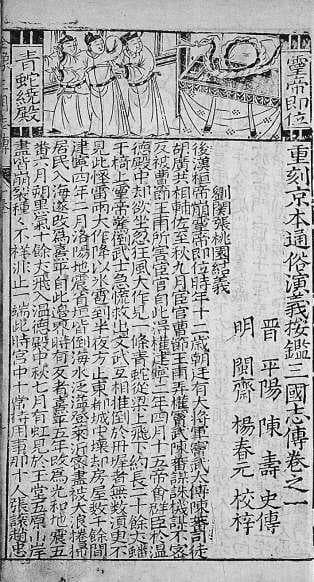 靈帝即位
青蛇繞殿
重刻京本通俗演義按鑑三國志傳卷之一
晉 平陽 陳 壽 史傳
明 閩齋 楊春元 校梓
劉關張桃園結義
後漢桓帝崩靈帝即位時年十二歲朝廷有大將軍竇武大傅陳蕃司徒
胡廣共相輔佐至秋九月宦官曹節王甫弄權竇武陳蕃謀誅機謀不密
反被曹節王甫所害宦官自此得權建寧二年四月十五帝會群臣於溫
德殿中却欲坐忽狂風大作見一條青蛇從梁上飛下約長二十餘丈蟠
于椅上靈帝驚倒武士急慌救出文武互相推倒於丹墀者無數須臾不
見此怪雷雨大作降以氷雹到半夜方止東都城中壞却房屋數千餘間
建寧四年二月洛陽地震省垣皆倒海水泛溢登萊沂密盡被大浪捲掃
居民入海遂改為熹平自此邊界時有反者熹平五年改為光和地震五
番六月朔黑氣十餘丈飛入溫德殿中秋七月有虹見於玉堂五原山岸
盡皆崩裂種種不祥非止一端此時宮中十常侍用事那十人張讓趙忠